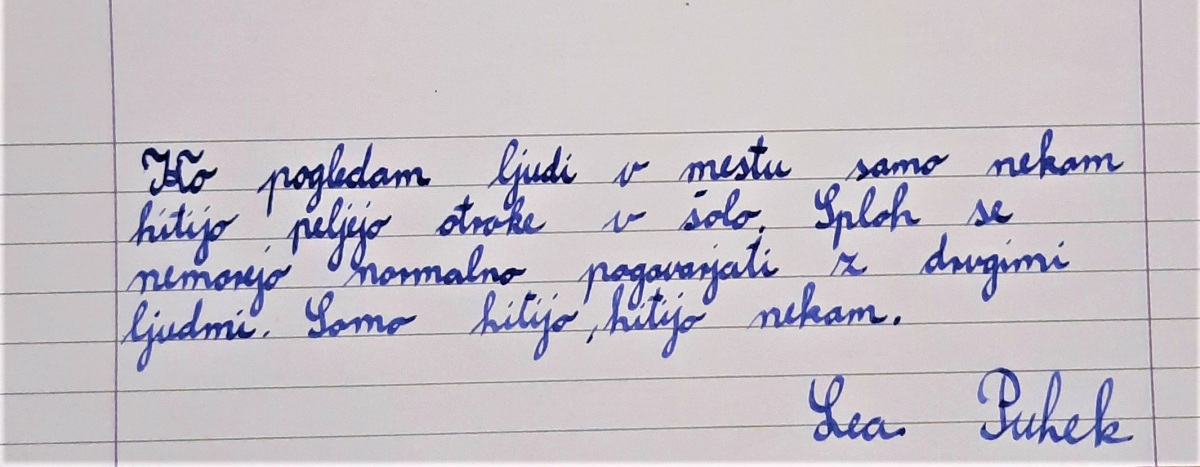 Ko pogledam ljudi v mestu samo nekam
hitijo, peljejo otroke v šolo. Sploh se
nemorejo normalno pogovarjati z drugimi
ljudmi. Samo hitijo, hitijo nekam.
Lea Puhek